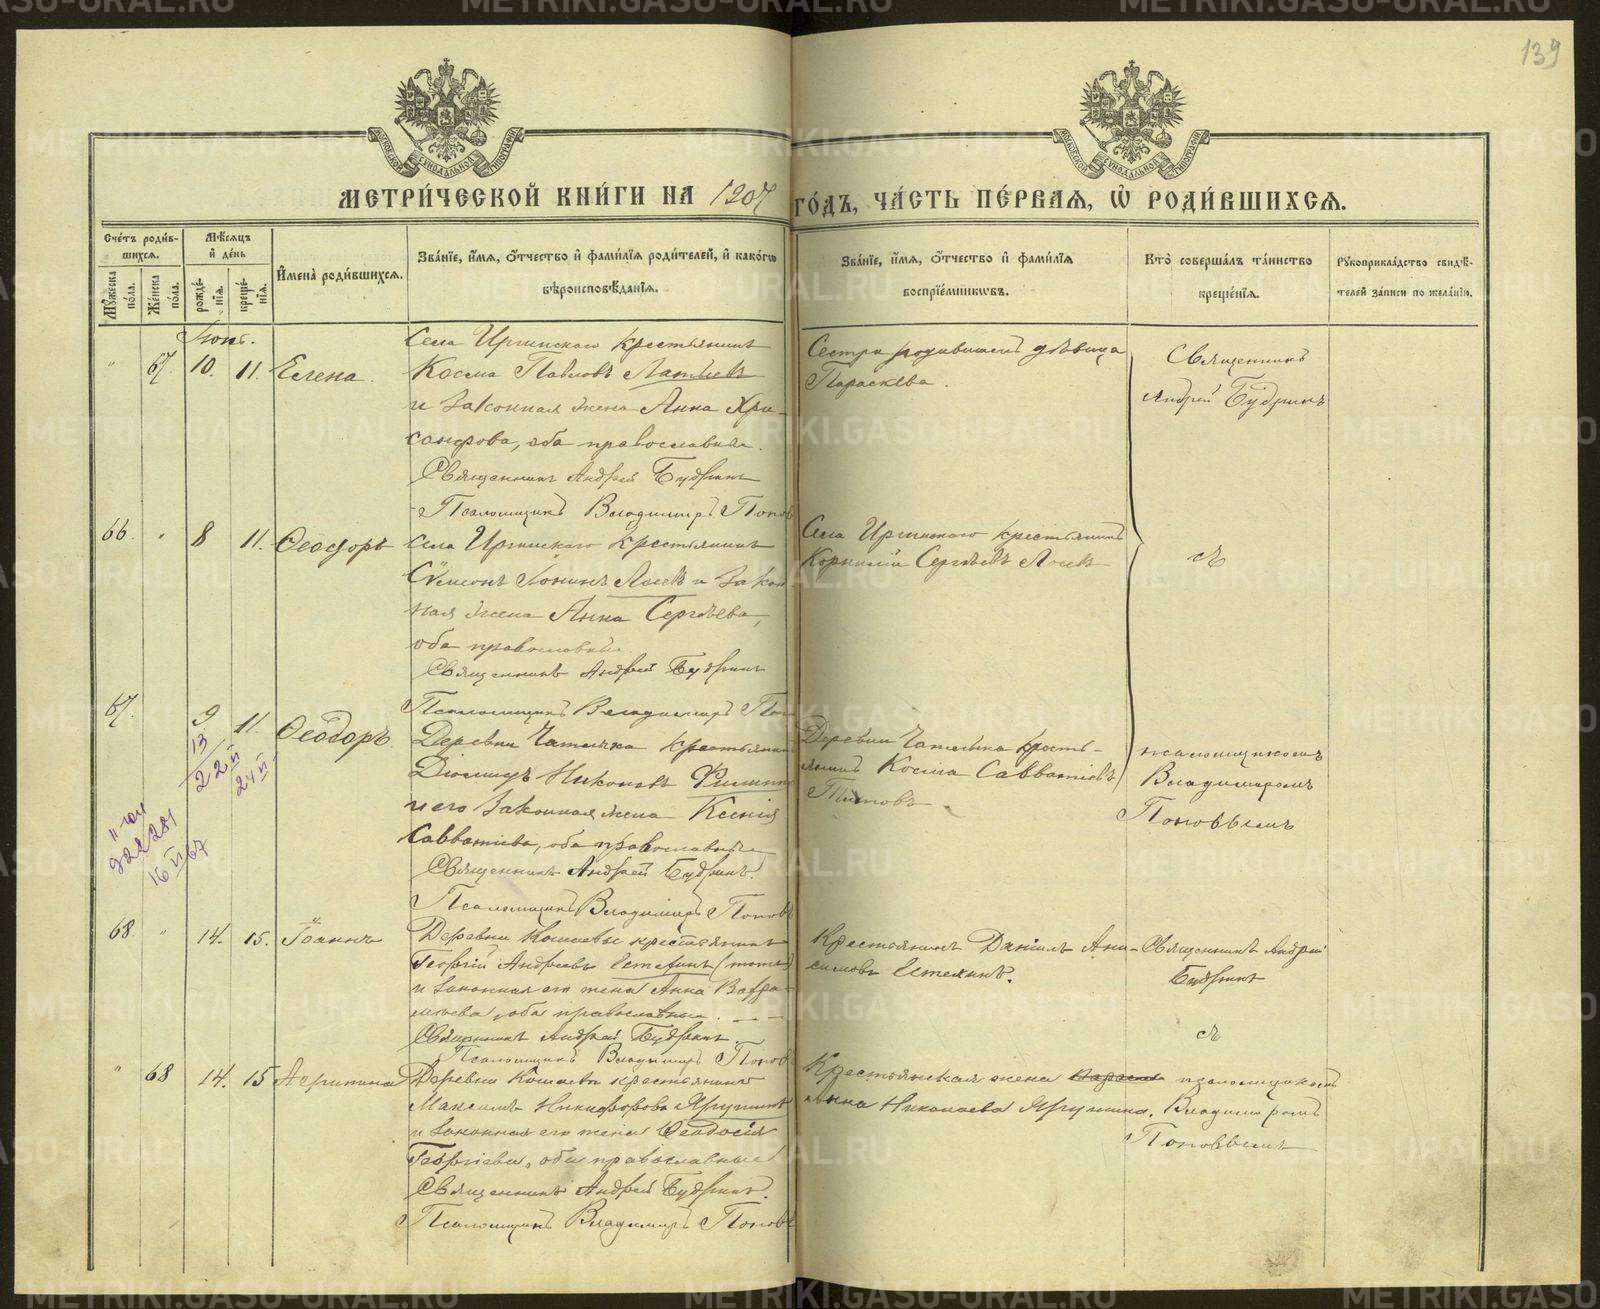 139
МОСКОВСКОЙ СѴНОДАЛЬНОЙ ТИПОГРАФІИ
МОСКОВСКОЙ СѴНОДАЛЬНОЙ ТИПОГРАФІИ
МЕТРИ́ЧЕСКОЙ КНИ́ГИ НА 1907 ГО́ДЪ, ЧА́СТЬ ПЕ́РВАѦ, Ѡ҆ РОДИ́ВШИХСѦ.
Сче́тъ роди́в-
шихсѧ.
Му́жеска по́ла.
Же́нска по́ла.
Мѣ́сѧцъ и҆ де́нь
рожде́нїѧ.
креще́нїѧ.
И҆мена̀ роди́вшихсѧ.
Зва́нїе, и҆́мѧ, ѻ҆́тчество и҆ фами́лїѧ роди́телей, и҆ како́гѡ
вѣроисповѣ́данїѧ.
Зва́нїе, и҆́мѧ, ѻ҆́тчество и҆ фами́лїѧ
воспрїе́мникѡвъ.
Кто̀ соверша́лъ та́инство
креще́нїѧ.
Рꙋкоприкла́дство свидѣ́-
телей за́писи по жела́нїю.
Іюнь.
" 67. 10. 11. Елена.
Села Иргинскаго крестьянинъ
Косма Павловъ
и законная жена Анна Хри-
санфова, оба православные.
Священникъ Андрей Будринъ
Псаломщикъ Владимиръ Поповъ
Сестра родившейся дѣвица
Параскева.
Священникъ
Андрей Будринъ
66. " 8 11. Ѳеодоръ
Села Иргинскаго крестьянинъ
Сѵмеонъ Іонинъ Лосевъ и закон
ная жена Анна Сергѣева,
оба православные
Священникъ Андрей Будринъ
Псаломщикъ Владимиръ Поп
Села Иргинскаго крестьянинъ
Корнилій Сергѣевъ Лосевъ
67. 9 11. Ѳеодоръ.
13
22 II
24 II
922281
16 II 67
Деревни крестьянинъ
Никоновъ
и его законная жена Ксенія
Савватіева, оба православные
Священникъ Андрей Будринъ.
Псаломщикъ Владимиръ Поповъ
Деревни кресть-
янинъ Косма Савватіевъ
Титовъ
псаломщикомъ
Владимиромъ
Поповымъ
68. " 14. 15. Іоаннъ
Деревни Кошаевы крестьянинъ
Георгій Андреевъ
и законная его жена Анна Варѳо-
ломеева, оба православные.
Священникъ Андрей Будринъ.
Псаломщикъ Владимиръ Поповъ
Крестьянинъ Даніилъ Ани-
симовъ
Священникъ Андрей
Будринъ
" 68 14. 15 Агрипина
Деревни Кошаевы крестьянинъ
Максимъ Никифоровъ Ярушинъ
и законная его жена Ѳеодосія
Георгіева, оба православные
Священникъ Андрей Будринъ.
Псаломщикъ Владимиръ Поповъ
Крестьянская жена
Анна Николаева Ярушина.
псаломщикомъ
Владимиромъ
Поповымъ
METRIKI.GASO-URAL.RU